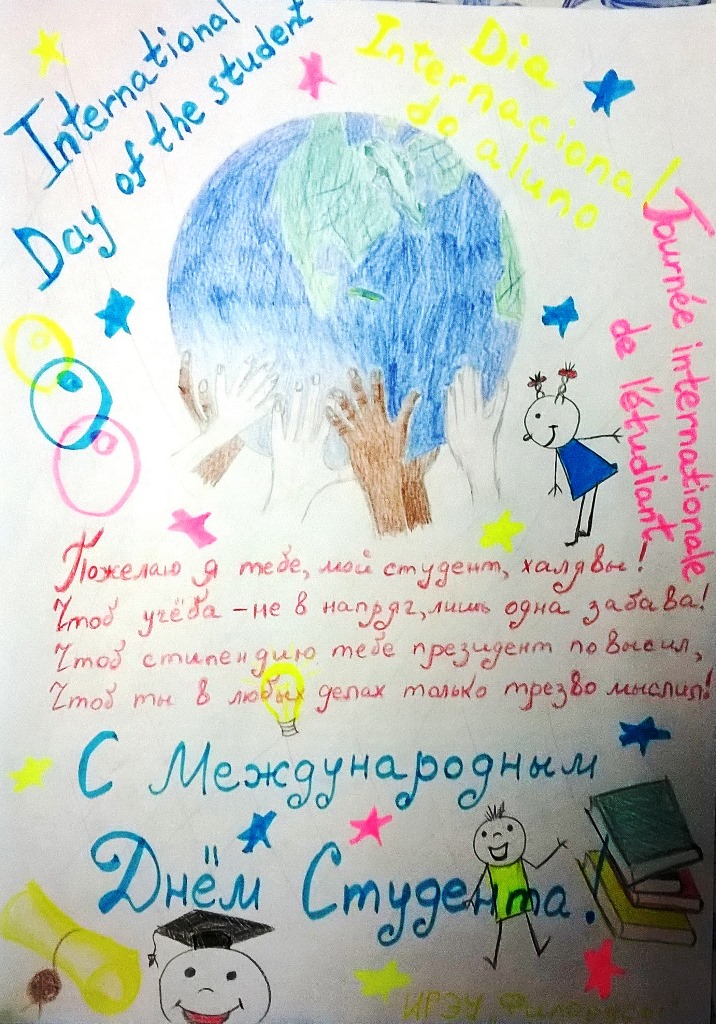 International
Day of the student
Dia
Internacional
do aluno
Journée internationale
de l'étudiant
Пожелаю я тебе, мой студент, халявы!
Чтоб учёба - не в напряг, лишь одна забава!
Чтоб стипендию тебе президент повысил,
Чтоб ты в любых делах только трезво мыслил!
С Международным
Днём Студента!